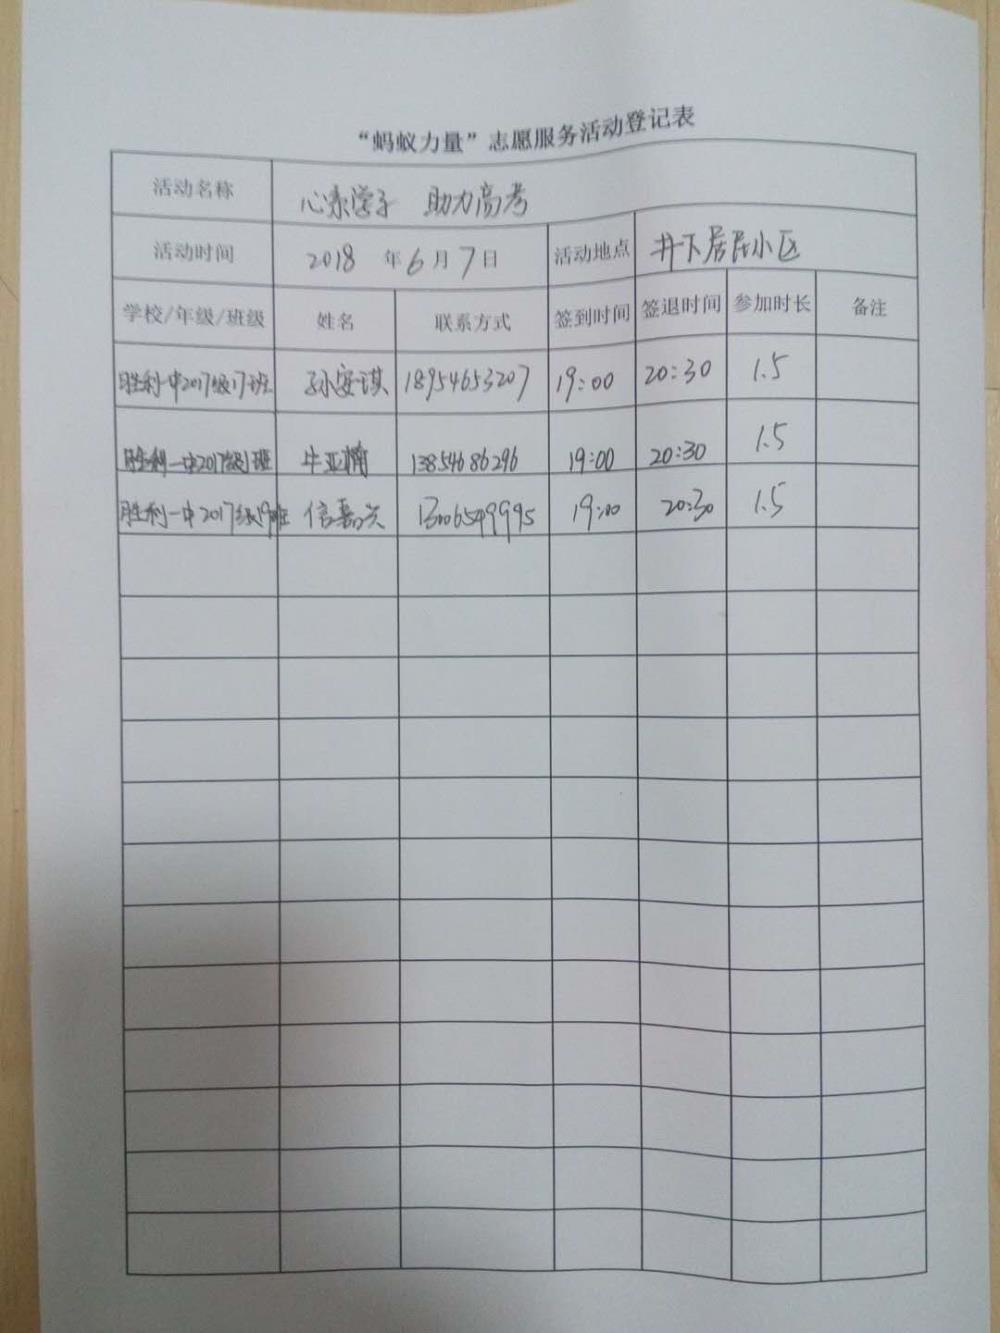 “蚂蚁力量”志愿服务活动登记表
活动名称 心系学子 助力高考
活动时间 2018 年 6 月 7 日 活动地点 井下居民小区
学校/年级/班级 姓名 联系方式 签到时间 签退时间 参加时长 备注
胜利一中2017级17班 孙安琪 18954653207 19:00 20:30 1.5
胜利一中2017级1班 牛亚楠 13854686296 19:00 20:30 1.5
胜利一中2017级19班 信嘉兴 13006549995 19:00 20:30 1.5